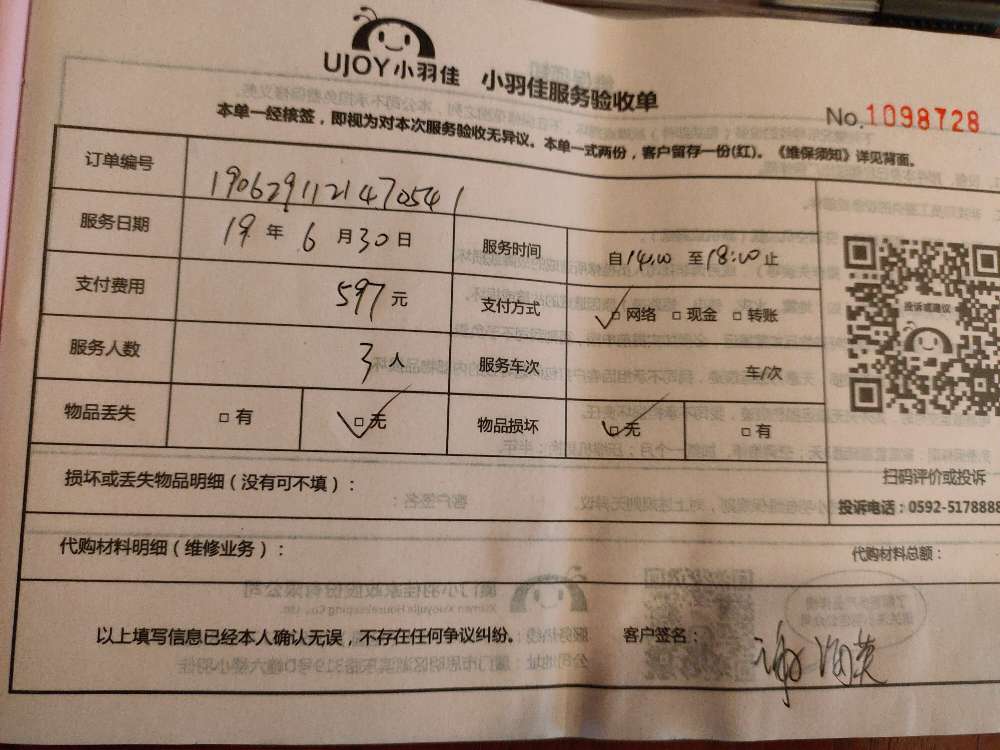 UJOY小羽佳 小羽佳服务验收单
No.1098728
本单一经核签，即视为对本次服务验收无异议。本单一式两份，客户留存一份(红)。《维保须知》详见背面。
订单编号 190629112147054 1
服务日期 19 年 6 月 30 日 服务时间 自14:00 至18:00止
支付费用 597元 支付方式 □网络 □现金 □转账
服务人数 3人 服务车次 车/次
物品丢失 □有 □无 物品损坏 □无 □有
投诉或建议
扫码评价或投诉
投诉电话：0592-5178888
损坏或丢失物品明细（没有可不填）：
代购材料明细（维修业务）： 代购材料总额：
以上填写信息已经本人确认无误，不存在任何争议纠纷。 客户签名：